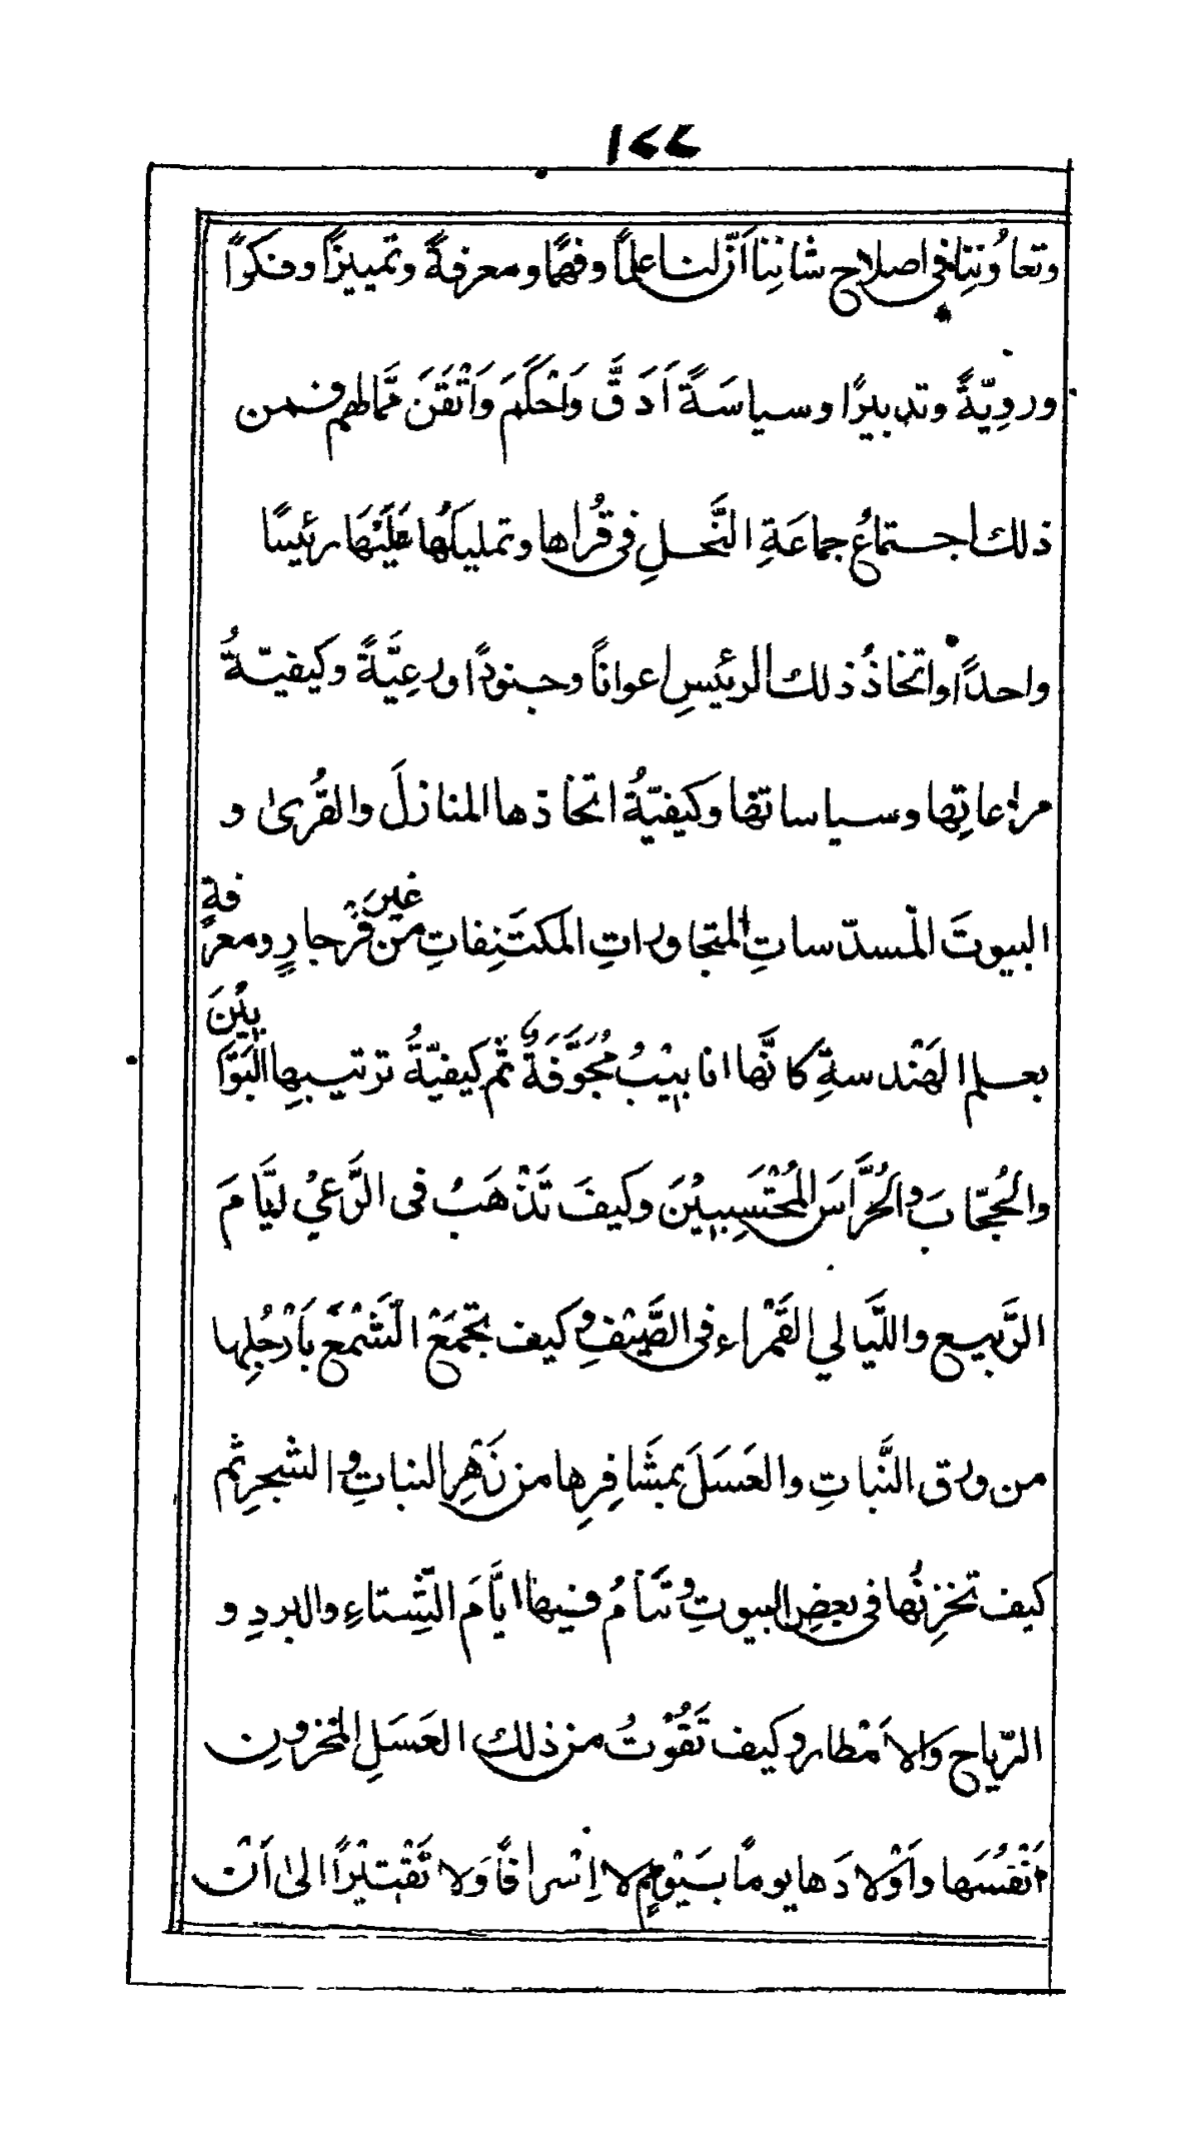 ١٤٤
وتعاوُنِنِا فی اصلاح شانِنِا اَنّ لنا علمًا وفهمًا ومعرفةً وتمییزًا وفکرًا
ورویّةً وتدبیرًا وسیاسَةً اَدَقَّ وَاَحْکَمَ وَاَتْقَنَ مّمالهم فمن
ذلك اجتماعُ جماعَةِ النَّحلِ فی قُراها وتملیکُها عَلَیْهَا رئیسًا
واحدًا واتخاذُ ذلك الرئیسِ اعوانًا وجنودًا ورعِیَّةً وکیفیّةُ
مراعاتِها وسیاساتها وکیفیّةُ اتخاذها المنازلَ والقُریٰ و
البیوتَ المسدّساتِ المتجاوراتِ المکتَنِفاتِ من غیرَ فرْجارٍ ومعرفةٍ
بعلم الهَنْدسةِ کانَّها انابیْبُ مُجَوَّفَةٌ ثم کیفیّةُ ترتیبِها البَوّابِیْنَ
والحُجّابَ والحُرَّاسَ المُحْتَسِبِیْنَ وکیفَ تَذْهَبُ فی الرَّعیْ لیَّامَ
الرَّبیع واللَّیالی القَمْراء فی الصَّیْفِ وکیف تجمَعْ الشَمْعَ بَاَرْجُلِها
من ورق النَّباتِ والعَسَلَ بمشَافِرِها من زَهْرِ النباتِ والشجرِ ثم
کیف تخزِنُها فی بعضِ البیوتِ وتنَامُ فیها ایَّامَ الشِّتاءِ والبردِ و
الرّیاح وَالاَمْطار وکیف تَقُوْتُ من ذلك العَسَلِ المخزونِ
اَنْفُسَها واَوْلادَها یومًا بیَوْمٍ لا اِسْرافًا وَلا تَقْتیْرًا الیٰ اَنْ